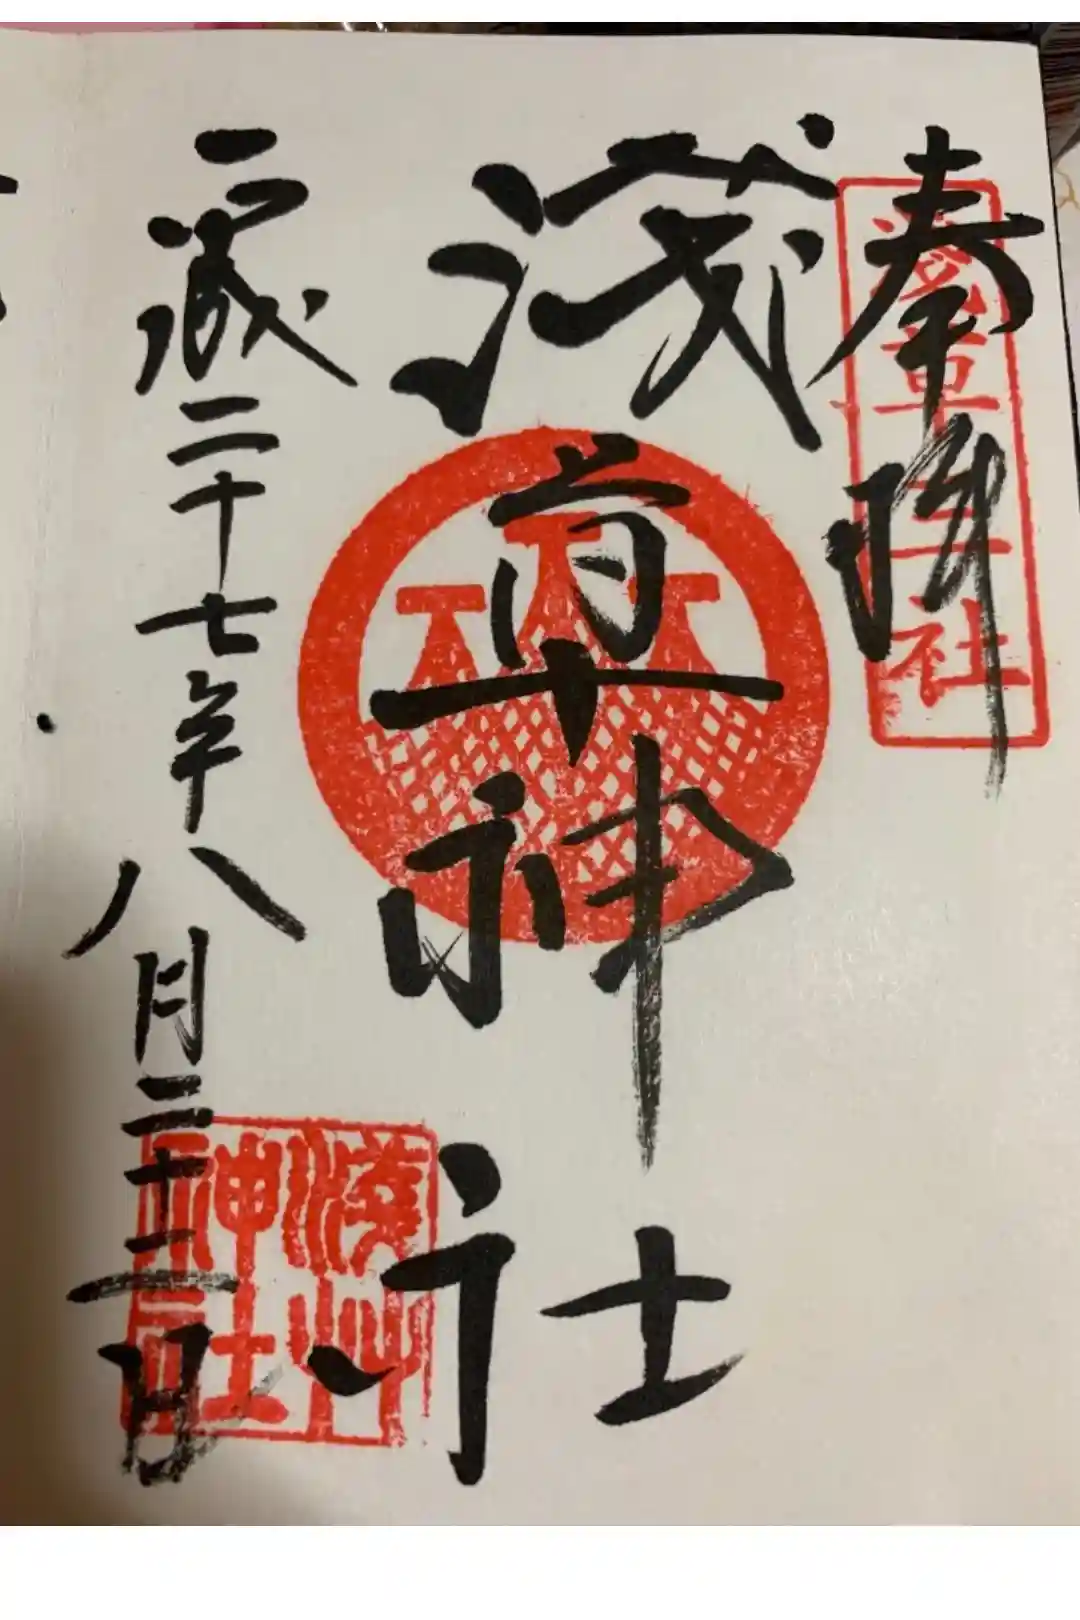 奉拝
淺草三社
浅草神社
淺草神社
平成二十七年八月二十二日